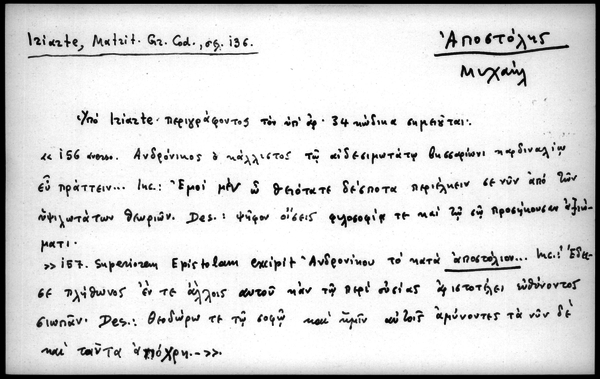 Iriarte, Matrit. Gr. Cod., σς. 136.
Ἀποστόλης
Μιχαήλ
Ὑπὸ Iriarte περιγράφοντος τὸν ὑπ' ἀρ. 34 κώδικα σημειοῦται:
« 156 averso. Ἀνδρόνικος ὁ κάλλιστος τῷ αἰδεσιμωτάτῳ βησσαρίωνι καρδιναλίῳ
εὖ πράττειν... Inc.: Ἐμοὶ μὲν ὦ θειότατε δέσποτα περιέλκειν σε νῦν ἀπὸ τῶν
ὑψηλωτάτων θεωριῶν. Des.: ψῆφον οἴσεις φιλοσοφίᾳ τε καὶ τῷ σῷ προσήκουσαν ἀξιώ-
ματι.
» 157. Superiorem Epistolam excipit Ἀνδρονίκου τὸ κατὰ ἀποστόλιον... Inc.: Ἔδει
σε πλήθωνος ἔν τε ἄλλοις αὐτοῦ κἀν τῷ περὶ οὐσίας ἀριστοτέλει εὐθύνοντος
σιωπᾶν. Des.: θεοδώρῳ τε τῷ σοφῷ καὶ ἡμῖν αὐτοῖς ἀμύνοντες τὰ νῦν δὲ
καὶ ταῦτα ἀπόχρη.—».